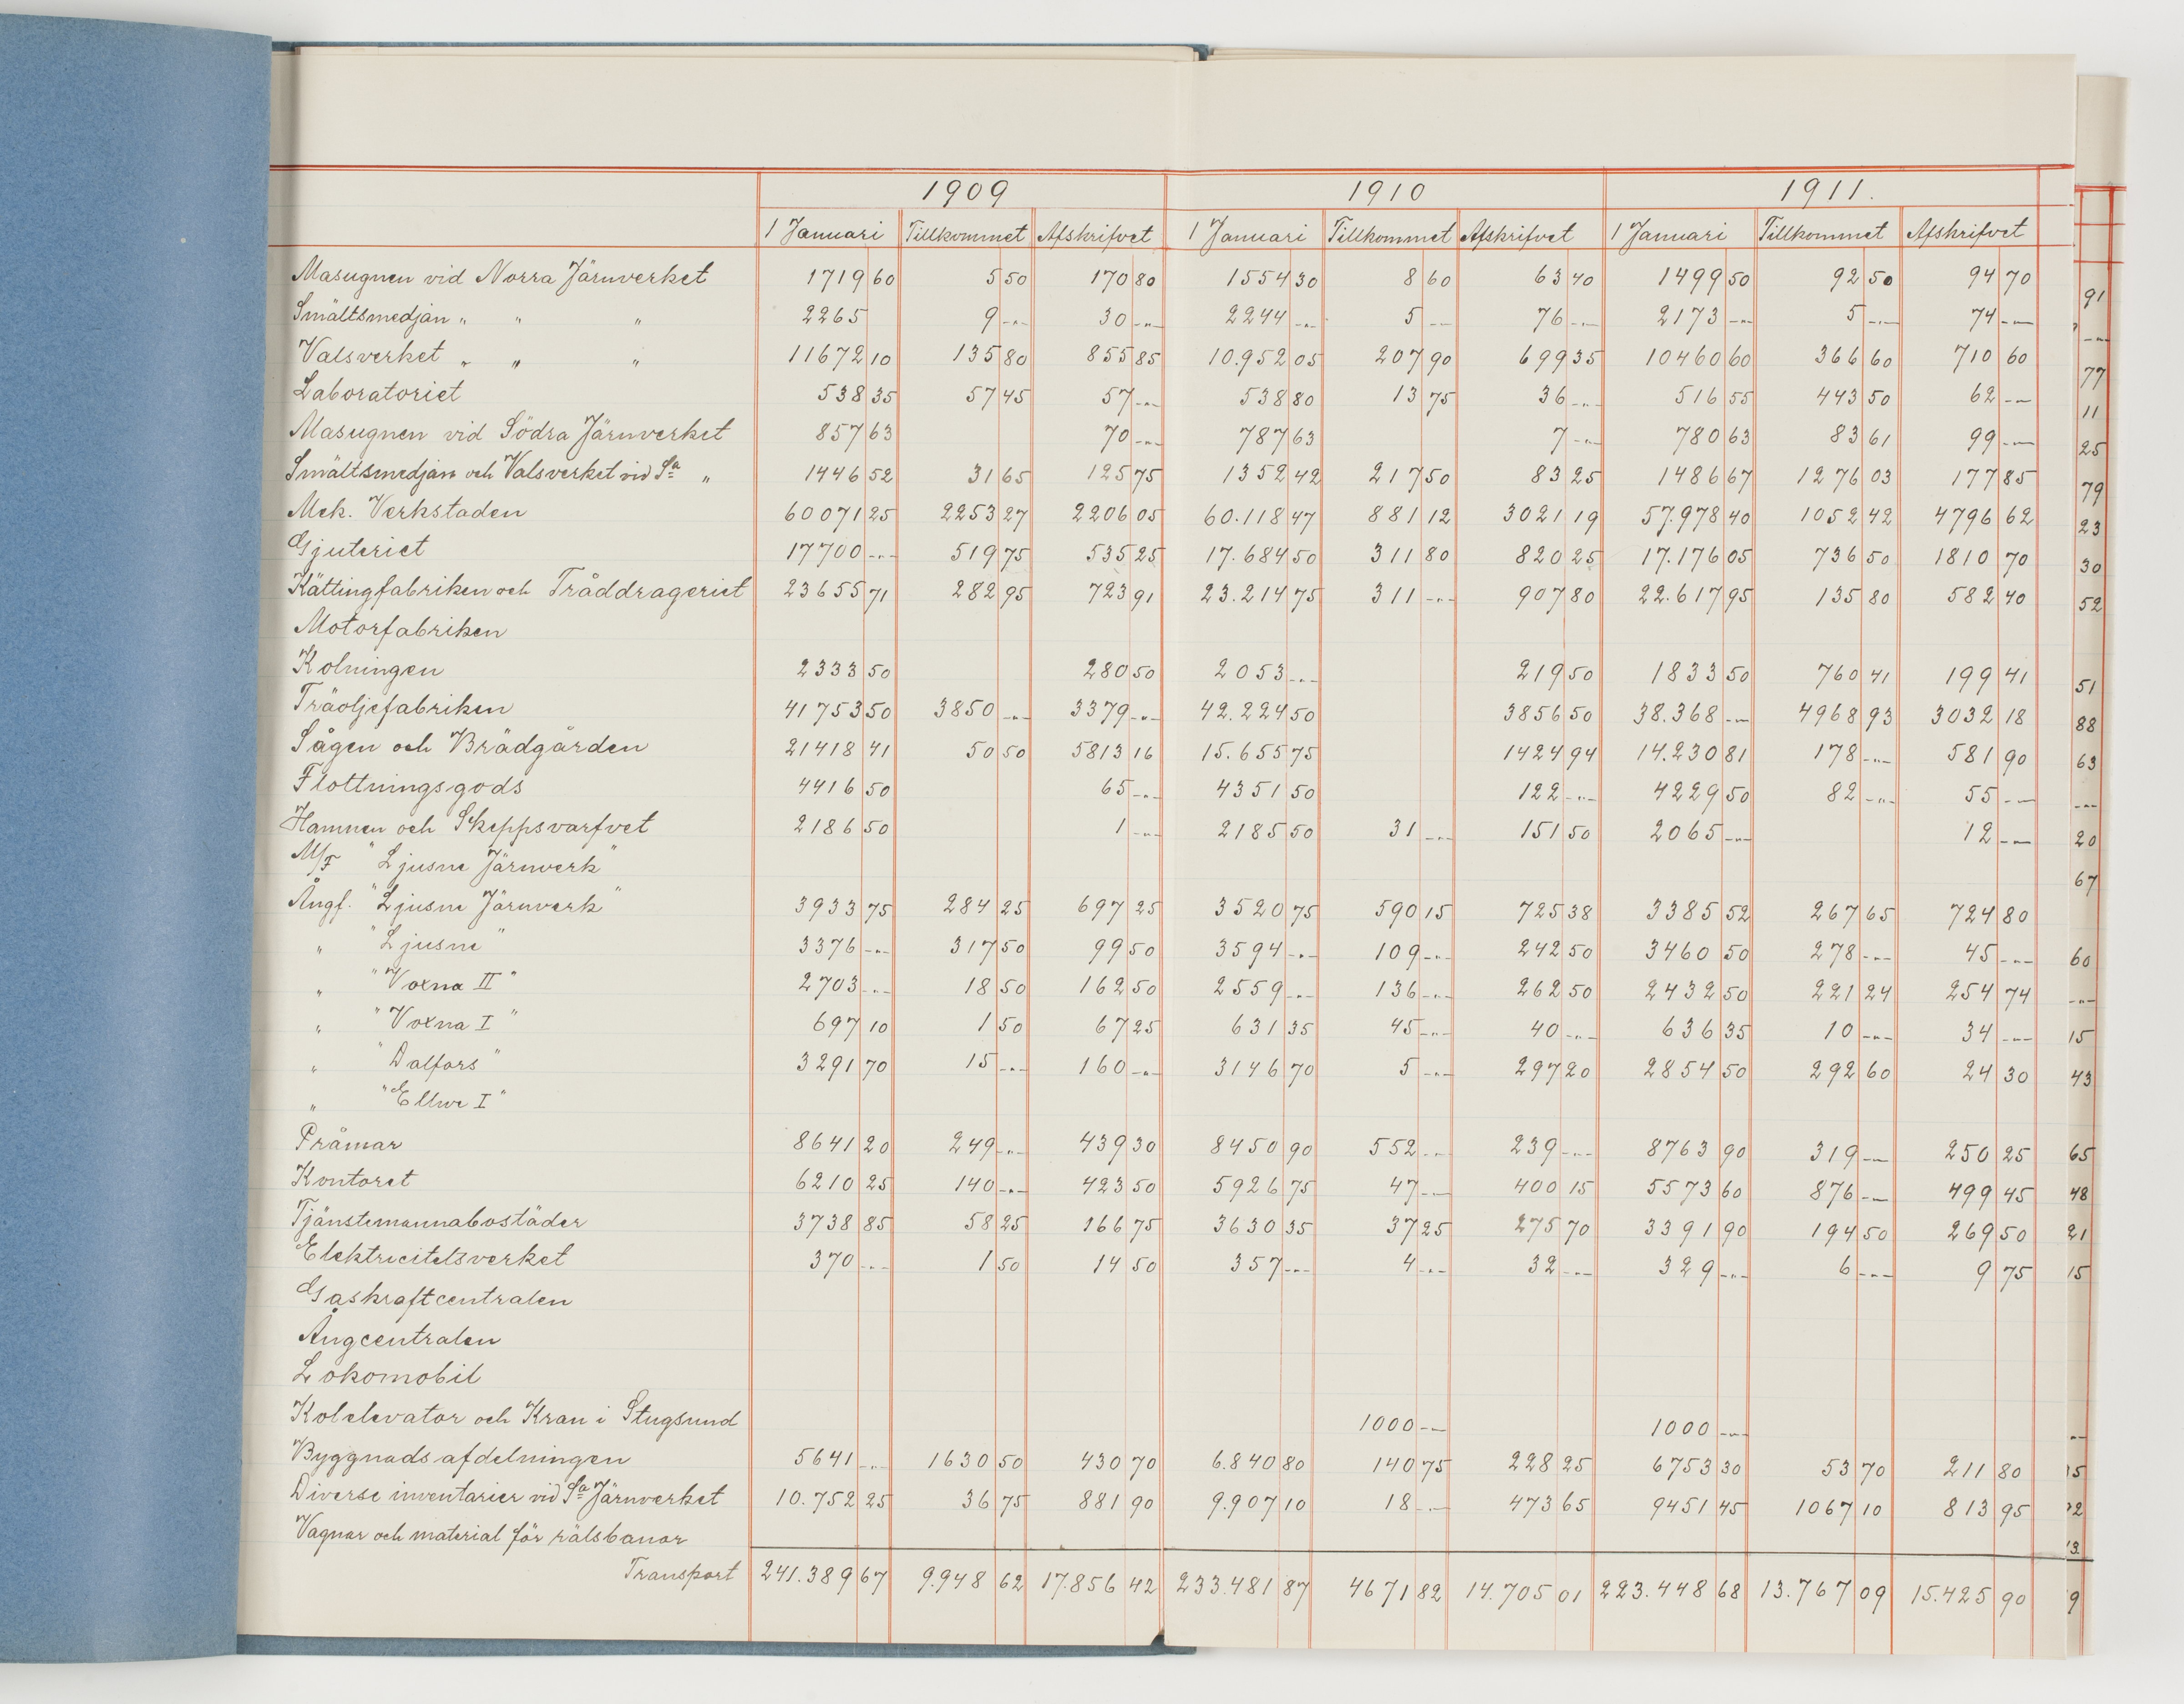 1909 1910 1911.
1 Januari Tillkommet Afskrifvet 1 Januari Tillkommet Afskrifvet 1 Januari Tillkommet Afskrifvet
Masugnen vid Norra Järnverket 1719 60 5 50 170 80 1554 30 8 60 63 40 1499 50 92 50 94 70 91
Smältsmedjan " " " 2265 9 -"- 30 -"- 2244 -"- 5 -"- 76 -"- 2173 -"- 5 -"- 74 -"- -"-
Valsverket " " " 11672 10 135 80 855 85 10.952 05 207 90 699 35 10460 60 366 60 710 60 77
Laboratoriet 538 35 57 45 57 -"- 538 80 13 75 36 -"- 516 55 443 50 62 -"- 11
Masugnen vid Södra Järnverket 857 63 70 -"- 787 63 7 -"- 780 63 83 61 99 -"- 25
Smältsmedjan och Valsverket vid Sa " 1446 52 31 65 125 75 1352 42 217 50 83 25 1486 67 1276 03 177 85 79
Mek. Verkstaden 60071 25 2253 27 2206 05 60.118 47 881 12 3021 19 57.978 40 1052 42 4796 62 23
Gjuteriet 17700 -"- 519 75 535 25 17.684 50 311 80 820 25 17.176 05 736 50 1810 70 30
Kättingfabriken och Tråddrageriet 23655 71 282 95 723 91 23.214 75 311 -"- 907 80 22.617 95 135 80 582 40 52
Motorfabriken
Kolningen 2333 50 280 50 2053 -"- 219 50 1833 50 760 41 199 41 51
Träoljefabriken 41753 50 3850 -"- 3379 -"- 42.224 50 3856 50 38.368 -"- 4968 93 3032 18 88
Sågen och Brädgården 21418 41 50 50 5813 16 15.655 75 1424 94 14.230 81 178 -"- 581 90 63
Flottningsgods 4416 50 65 -"- 4351 50 122 -"- 4229 50 82 -"- 55 -"- -"-
Hamnen och Skeppsvarfvet 2186 50 1 -"- 2185 50 31 -"- 151 50 2065 -"- 12 -"- 20
M/F "Ljusne Järnverk" 67
Ångf. "Ljusne Järnverk" 3933 75 284 25 697 25 3520 75 590 15 725 38 3385 52 267 65 724 80
" "Ljusne" 3376 -"- 317 50 99 50 3594 -"- 109 -"- 242 50 3460 50 278 -"- 45 -"- 60
" "Voxna II" 2703 -"- 18 50 162 50 2559 -"- 136 -"- 262 50 2432 50 221 24 254 74 -"-
" "Voxna I" 697 10 1 50 67 25 631 35 45 -"- 40 -"- 636 35 10 -"- 34 -"- 15
" "Dalfors" 3291 70 15 -"- 160 -"- 3146 70 5 -"- 297 20 2854 50 292 60 24 30 43
" "Ellwe I"
Pråmar 8641 20 249 -"- 439 30 8450 90 552 -"- 239 -"- 8763 90 319 -"- 250 25 65
Kontoret 6210 25 140 -"- 423 50 5926 75 47 -"- 400 15 5573 60 876 -"- 499 45 48
Tjänstemannabostäder 3738 85 58 25 166 75 3630 35 37 25 275 70 3391 90 194 50 269 50 21
Elektricitetsverket 370 -"- 1 50 14 50 357 -"- 4 -"- 32 -"- 329 -"- 6 -"- 9 75 15
Gaskraftcentralen
Ångcentralen
Lokomobil
Kolelevator och Kran i Stugsund 1000 -"- 1000 -"-
Byggnadsafdelningen 5641 -"- 1630 50 430 70 6.840 80 140 75 228 25 6753 30 53 70 211 80
Diverse inventarier vid Sa Järnverket 10.752 25 36 75 881 90 9.907 10 18 -"- 473 65 9451 45 1067 10 813 95
Vagnar och material för rälsbanor
Transport 241.389 67 9.948 62 17.856 42 233.481 87 4671 82 14.705 01 223.448 68 13.767 09 15.425 90